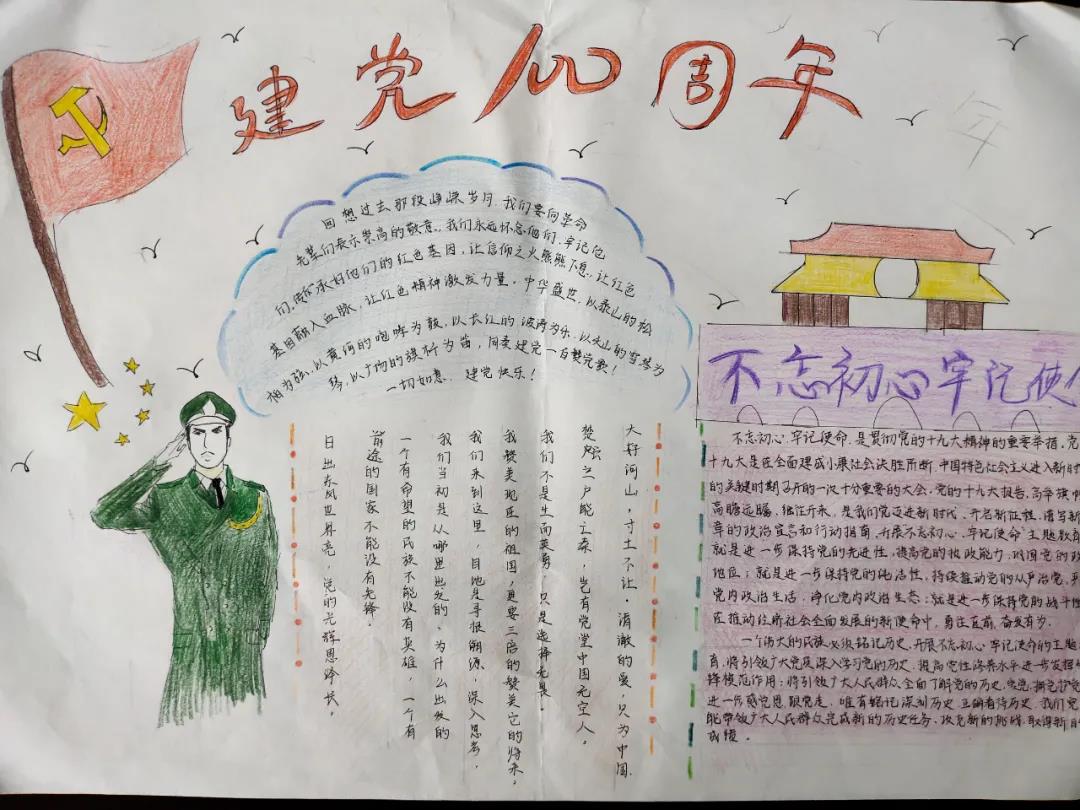 建党100周年
年
回想过去那段峥嵘岁月，我们要向革命
先辈们表示崇高的敬意。我们永远怀念他们，牢记他
们，传承好他们的红色基因，让信仰之火熊熊不息，让红色
基因融入血脉，让红色精神激发力量。中华盛世，以泰山的松
柏为弦，以黄河的咆哮为鼓，以长江的波涛为乐，以天山的雪岑为
琴，以广场的旗杆为笛，同奏建党一百赞党歌！
一切如意，建党快乐！
大好河山，寸土不让，清澈的爱，只为中国。
楚虽三户能亡秦，岂有堂堂中国无空人。
我们不是生而英勇，只是选择无畏。
我赞美现在的祖国，更要三倍的赞美它的将来。
我们来到这里，目地是寻根溯源，深入思考，
我们当初是从哪里出发的，为什么出发的
一个有希望的民族不能没有英雄，一个有
前途的国家不能没有先锋。
日出东风世界亮，党的光辉思路长。
不忘初心牢记使
不忘初心、牢记使命，是贯彻党的十九大精神的重要举措，党
十九大是在全面建成小康社会决胜所断、中国特色社会主义进入新时
的关键时期召开的一次十分重要的大会，党的十九大报告，高举旗
高瞻远瞩，继往开来，是我们党迈进新时代、开启新征程、谱写新
章的政治宣言和行动指南，开展不忘初心、牢记使命主题教育
就是进一步保持党的先进性，提高党的执政能力，巩固党的政
地位；就是进一步保持党的纯洁性，持续推动党的从严治党，
党内政治生活，净化党内政治生态；就是进一步保持党的战斗性
在推动经济社会全面发展的新使命中，勇往直前、奋发有为。
一个伟大的民族必须铭记历史，开展不忘初心牢记使命的主题
育，将引领广大党员深入学习党的历史，提高党性修养水平进一步发挥
锋模范作用；将引领广大人民群众全面了解党的历史，爱党、拥党护党
进一步感党恩跟党走，唯有铭记深刻历史，正确看待历史，我们党
能带领广大人民群众完成新的历史任务、攻克新的挑战，取得新的
成绩。